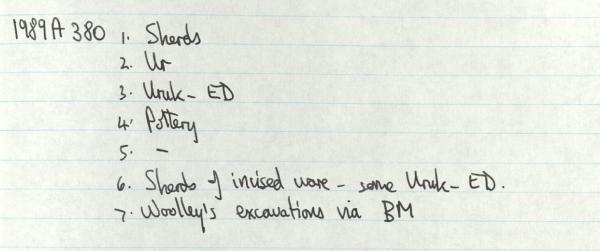 1989A 380 1. Sherds
2. Ur
3. Uruk - ED
4. Pottery
5. -
6. Sherds of incised ware - some Uruk - ED.
7. Woolley's excavations via BM